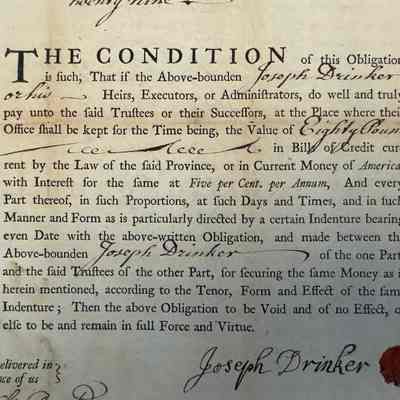 twenty nine
THE CONDITION of this Obligation
is such, That if the Above-bounden Joseph Drinker
or his Heirs, Executors, or Administrators, do well and truly
pay unto the said Trustees or their Successors, at the Place where their
Office shall be kept for the Time being, the Value of Eighty Poun
in Bills of Credit cur-
rent by the Law of the said Province, or in Current Money of America
with Interest for the same at Five per Cent. per Annum, And every
Part thereof, in such Proportions, at such Days and Times, and in such
Manner and Form as is particularly directed by a certain Indenture bearing
even Date with the above-written Obligation, and made between th
Above-bounden Joseph Drinker of the one Part
and the said Trustees of the other Part, for securing the same Money as i
herein mentioned, according to the Tenor, Form and Effect of the sam
Indenture; Then the above Obligation to be Void and of no Effect, o
else to be and remain in full Force and Virtue.
Joseph Drinker
elivered in
ce of us